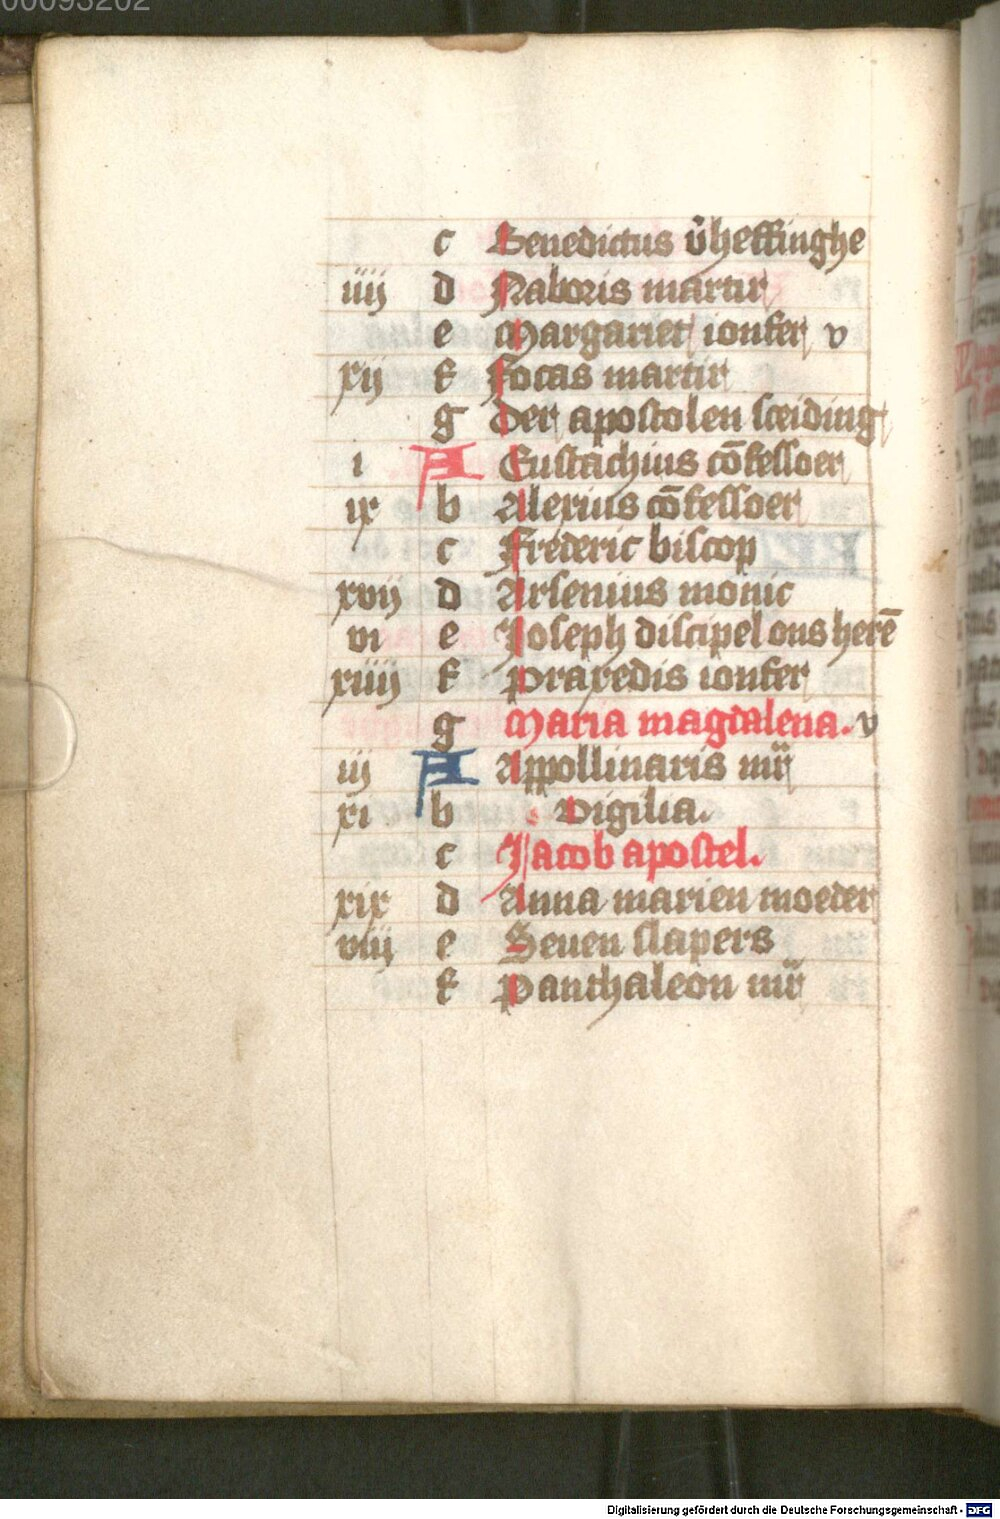 00093202
c Benedictus v̄heffinghe
iiij d Naboris martir
e Margariet ionfer v
xij f Focas martir
g Der apostolen sceiding
i A Eustachius cōfessoer
ix b Alexius cōfessoer
c Frederic biscop
xvij d Arsenius monic
vi e Joseph discipel ons herē
xiiij f Praxedis ionfer
g Maria magdalena. v
iij A Appollinaris mr̄
xi b Vigilia.
c Jacob apostel.
xix d Anna marien moeder
viij e Seuen slapers
f Panthaleon mr̄
Digitalisierung gefördert durch die Deutsche Forschungsgemeinschaft - DFG